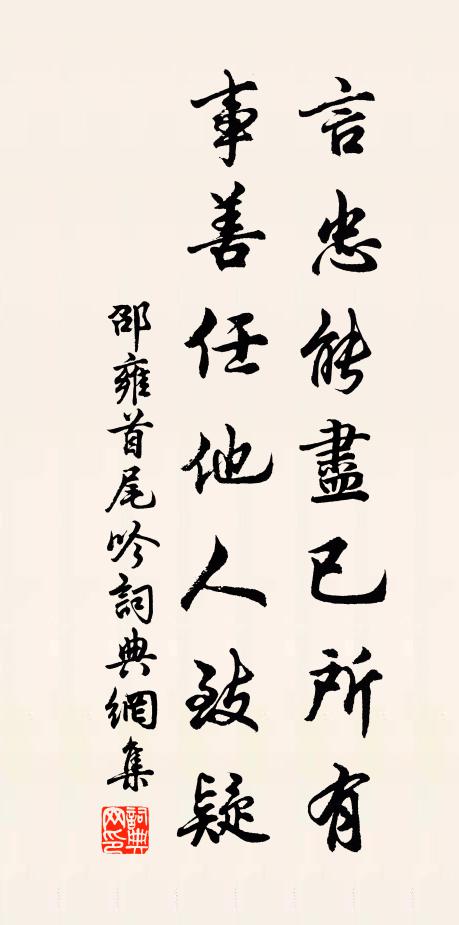 言忠能盡已所有
事善任他人致疑
邵雍首尾吟詞典網集
詞典
网印